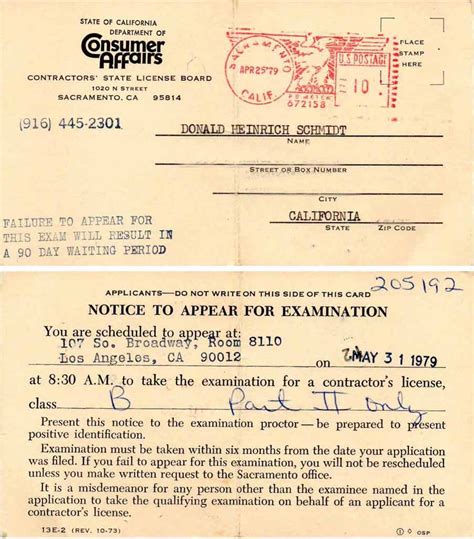 STATE OF CALIFORNIA
DEPARTMENT OF
Consumer
Affairs
CONTRACTORS' STATE LICENSE BOARD
1020 N STREET
SACRAMENTO, CA 95814
(916) 445-2301
SACRAMENTO
APR 25 '79
CALIF.
U.S. POSTAGE
10
PB METER
672158
PLACE
STAMP
HERE
DONALD HEINRICH SCHMIDT
NAME
STREET OR BOX NUMBER
CITY
CALIFORNIA
STATE ZIP CODE
FAILURE TO APPEAR FOR
THIS EXAM WILL RESULT IN
A 90 DAY WAITING PERIOD
205192
APPLICANTS—DO NOT WRITE ON THIS SIDE OF THIS CARD
NOTICE TO APPEAR FOR EXAMINATION
You are scheduled to appear at:
107 So. Broadway, Room 8110
Los Angeles, CA 90012 on MAY 31 1979
at 8:30 A.M. to take the examination for a contractor's license,
class B Part II only
Present this notice to the examination proctor—be prepared to present
positive identification.
Examination must be taken within six months from the date your application
was filed. If you fail to appear for this examination, you will not be rescheduled
unless you make written request to the Sacramento office.
It is a misdemeanor for any person other than the examinee named in the
application to take the qualifying examination on behalf of an applicant for a
contractor's license.
13E-2 (REV. 10-73) OSP